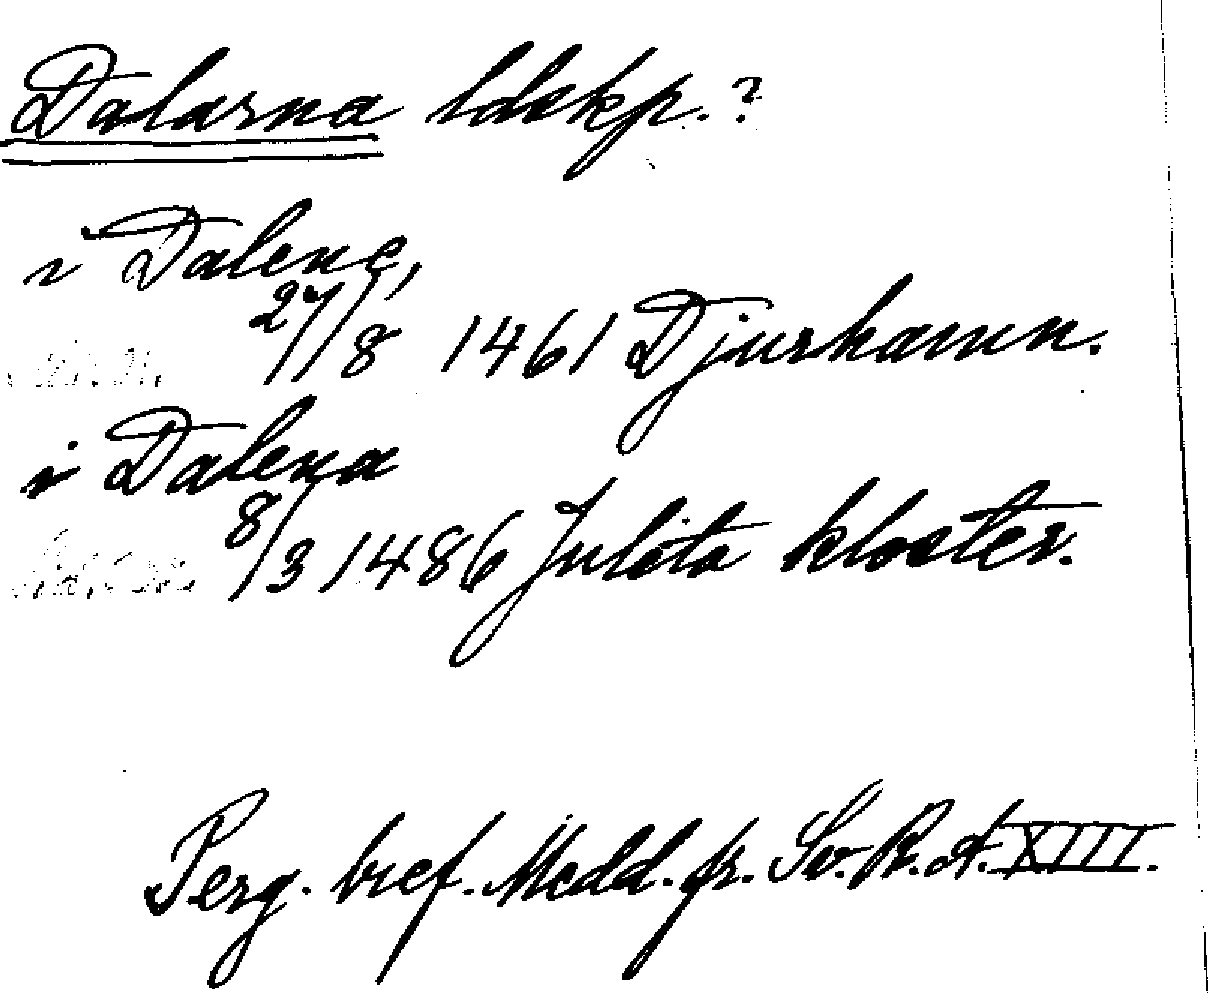 Dalarna ldskp.?
i Dalene,
27/8 1461 Djurhamn.
i Dalena
8/3 1486 Julita kloster.
Perg. bref. Medd. fr. Sv. R. A. XIII.